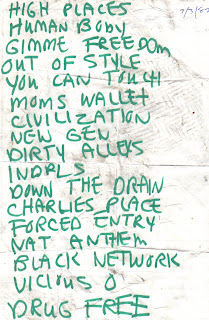 HIGH PLACES
HUMAN BODY
GIMME FREEDOM
OUT OF STYLE
YOU CAN TOUCH
MOMS WALLET
CIVILIZATION
NEW GEN
DIRTY ALLEYS
INDRLS
DOWN THE DRAIN
CHARLIES PLACE
FORCED ENTRY
NAT ANTHEM
BLACK NETWORK
VICIOUS O
DRUG FREE